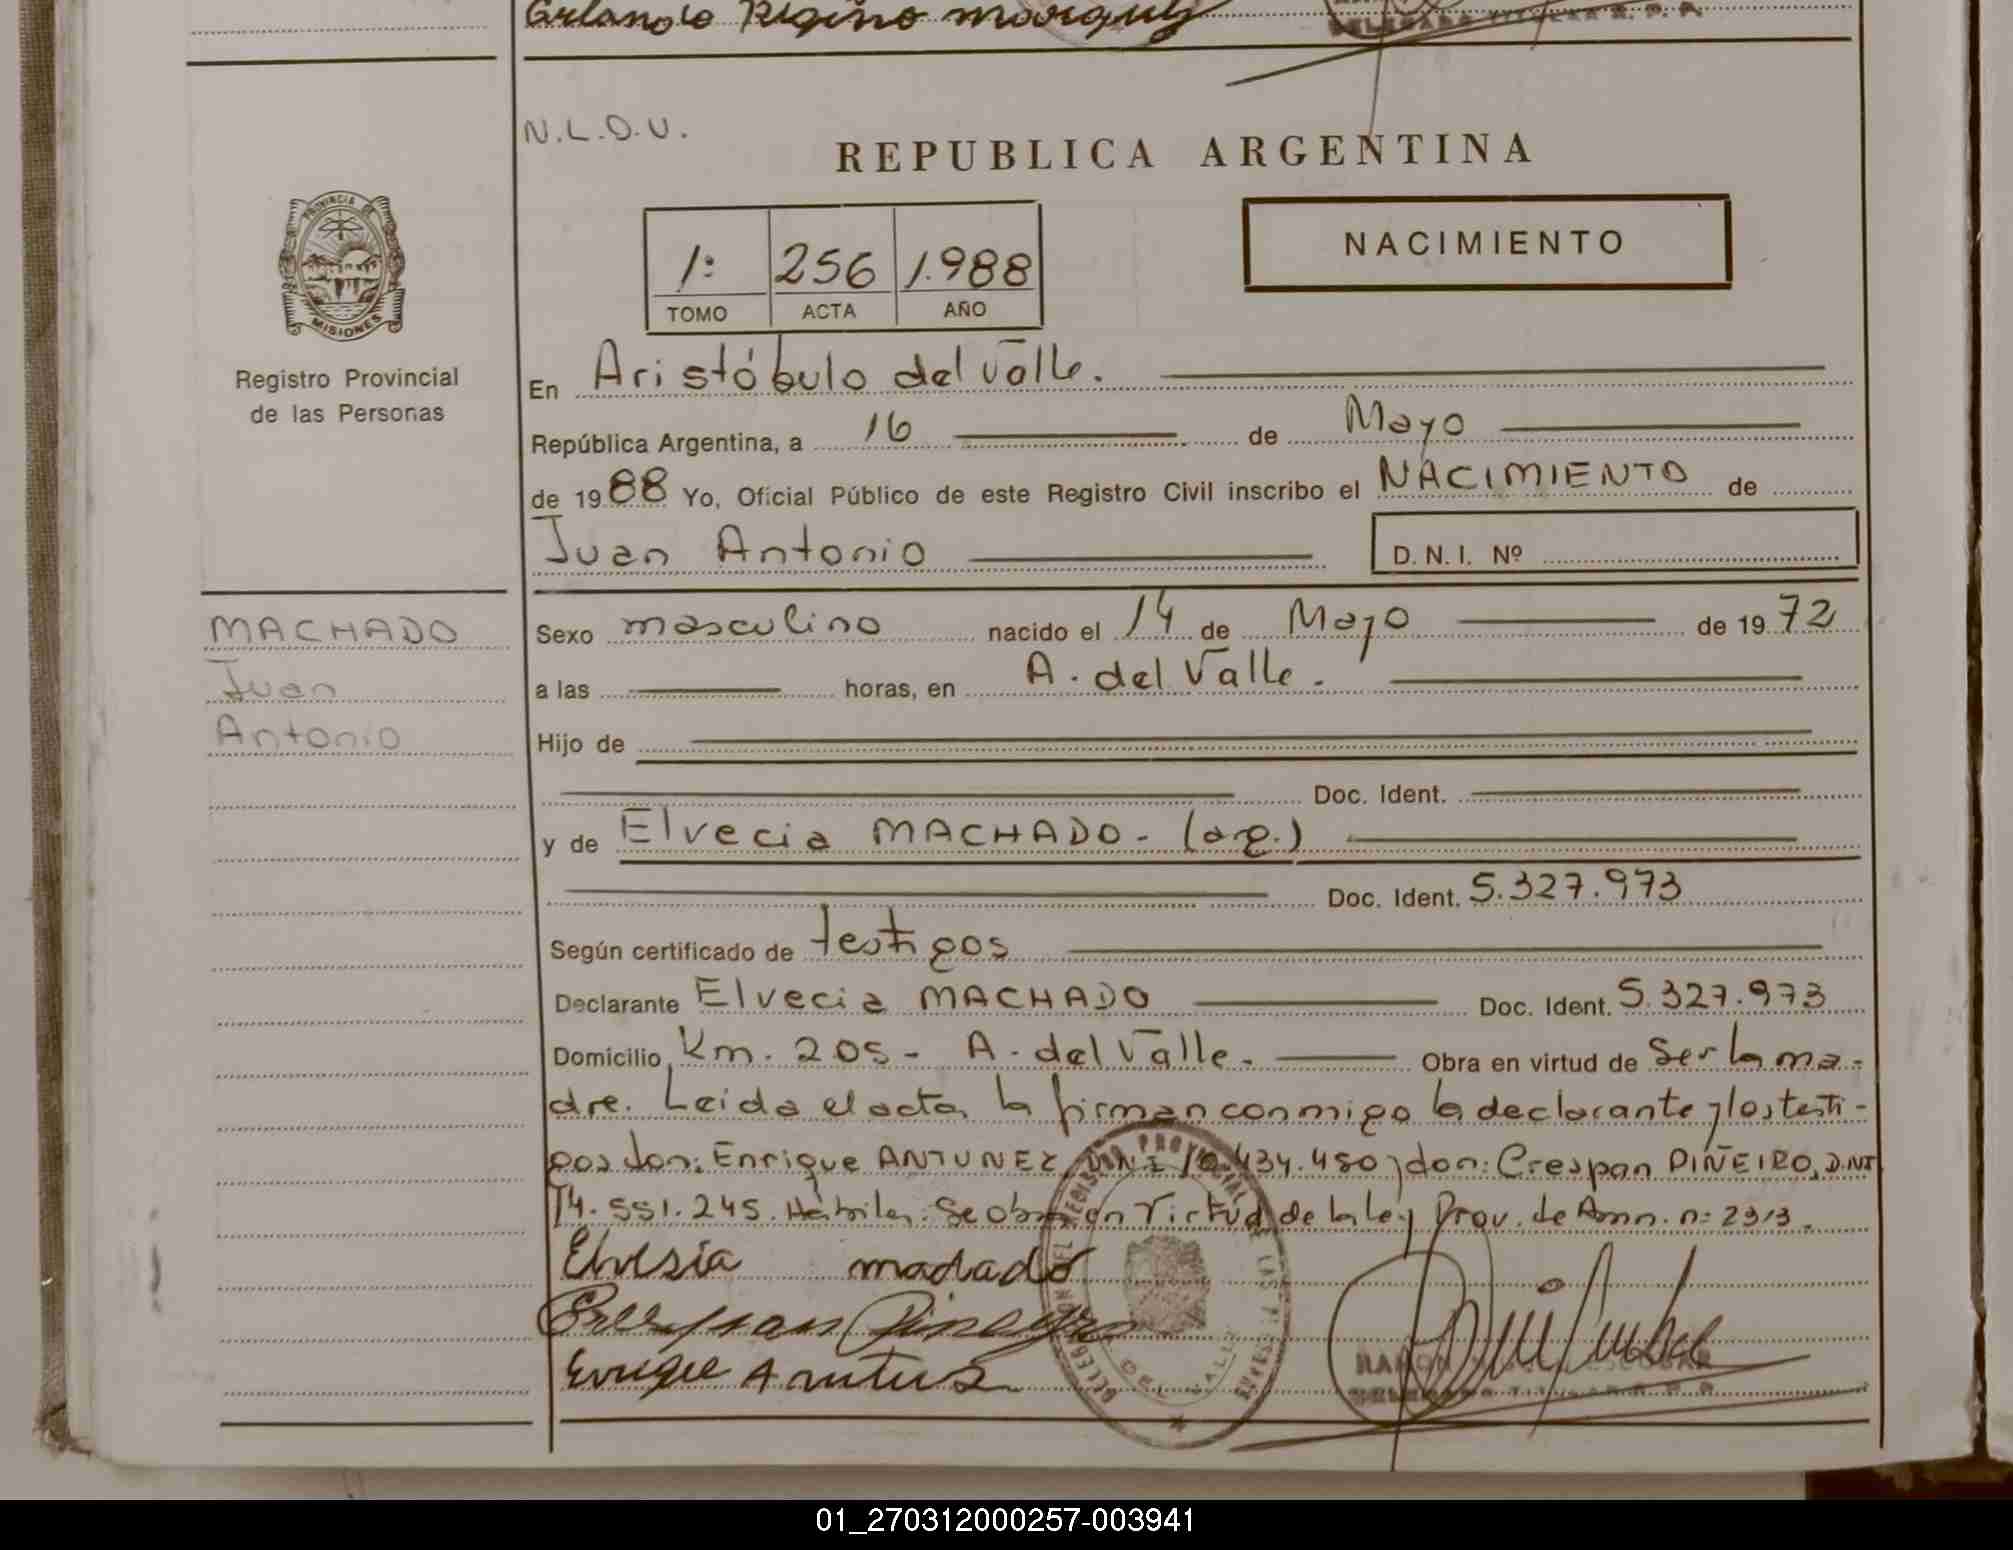 Orlando Regino Marquez
DELEGADA TITULAR R. P. P.
N.L.D.U.
REPUBLICA ARGENTINA
1: 256 1.988
TOMO ACTA AÑO
NACIMIENTO
PROVINCIA DE
MISIONES
Registro Provincial
de las Personas
En Aristóbulo del Valle.
República Argentina, a 16 de Mayo
de 1988 Yo, Oficial Público de este Registro Civil inscribo el NACIMIENTO de
Juan Antonio D.N.I. Nº
MACHADO
Juan
Antonio
Sexo masculino nacido el 14 de Mayo de 1972
a las horas, en A. del Valle.
Hijo de
Doc. Ident.
y de Elvecia MACHADO - (arg.)
Doc. Ident. 5.327.973
Según certificado de testigos
Declarante Elvecia MACHADO Doc. Ident. 5.327.973
Domicilio Km. 205 - A. del Valle. Obra en virtud de Ser la ma-
dre. Leida el acta, la firman conmigo la declarante y los testi-
gos don: Enrique ANTUNEZ, DNI 10.434.450 y don: Crespan PIÑEIRO, D.NI
14.551.245. Hábiles. Se obra en Virtud de la ley Prov. de Amn. n: 2313.
Elvesia madado
Crespan Pineyro
Enrique Antunez
DELEGACION DEL REGISTRO PROVINCIAL DE LAS PERSONAS
DEL VALLE
RAMON ESCOBAR
DELEGADO TITULAR R. P. P.
01_270312000257-003941